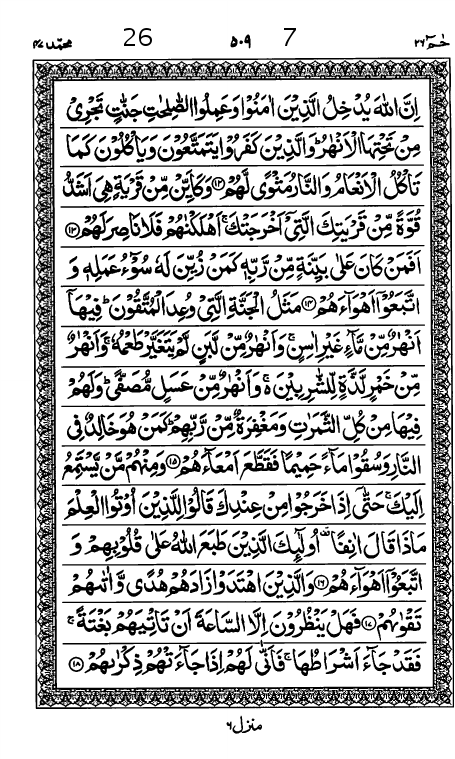 محمد ٤٧ 26 ٥٠٩ 7 حٰمٓ ٢٦
اِنَّ اللّٰهَ يُدْخِلُ الَّذِيْنَ اٰمَنُوْا وَعَمِلُوا الصّٰلِحٰتِ جَنّٰتٍ تَجْرِىْ
مِنْ تَحْتِهَا الْاَنْهٰرُ ؕ وَالَّذِيْنَ كَفَرُوْا يَتَمَتَّعُوْنَ وَيَاْكُلُوْنَ كَمَا
تَاْكُلُ الْاَنْعَامُ وَالنَّارُ مَثْوًى لَّهُمْ ۝١٢ وَكَاَيِّنْ مِّنْ قَرْيَةٍ هِىَ اَشَدُّ
قُوَّةً مِّنْ قَرْيَتِكَ الَّتِىْۤ اَخْرَجَتْكَ ۚ اَهْلَكْنٰهُمْ فَلَا نَاصِرَ لَهُمْ ۝١٣
اَفَمَنْ كَانَ عَلٰى بَيِّنَةٍ مِّنْ رَّبِّهٖ كَمَنْ زُيِّنَ لَهٗ سُوْٓءُ عَمَلِهٖ وَ
اتَّبَعُوْۤا اَهْوَآءَهُمْ ۝١٤ مَثَلُ الْجَنَّةِ الَّتِىْ وُعِدَ الْمُتَّقُوْنَ ؕ فِيْهَاۤ
اَنْهٰرٌ مِّنْ مَّآءٍ غَيْرِ اٰسِنٍ ۚ وَاَنْهٰرٌ مِّنْ لَّبَنٍ لَّمْ يَتَغَيَّرْ طَعْمُهٗ ۚ وَاَنْهٰرٌ
مِّنْ خَمْرٍ لَّذَّةٍ لِّلشّٰرِبِيْنَ ۚ وَاَنْهٰرٌ مِّنْ عَسَلٍ مُّصَفًّى ؕ وَلَهُمْ
فِيْهَا مِنْ كُلِّ الثَّمَرٰتِ وَمَغْفِرَةٌ مِّنْ رَّبِّهِمْ ؕ كَمَنْ هُوَ خَالِدٌ فِى
النَّارِ وَسُقُوْا مَآءً حَمِيْمًا فَقَطَّعَ اَمْعَآءَهُمْ ۝١٥ وَمِنْهُمْ مَّنْ يَّسْتَمِعُ
اِلَيْكَ ۚ حَتّٰۤى اِذَا خَرَجُوْا مِنْ عِنْدِكَ قَالُوْا لِلَّذِيْنَ اُوْتُوا الْعِلْمَ
مَاذَا قَالَ اٰنِفًا ۫ اُولٰٓئِكَ الَّذِيْنَ طَبَعَ اللّٰهُ عَلٰى قُلُوْبِهِمْ وَ
اتَّبَعُوْۤا اَهْوَآءَهُمْ ۝١٦ وَالَّذِيْنَ اهْتَدَوْا زَادَهُمْ هُدًى وَّاٰتٰىهُمْ
تَقْوٰىهُمْ ۝١٧ فَهَلْ يَنْظُرُوْنَ اِلَّا السَّاعَةَ اَنْ تَاْتِيَهُمْ بَغْتَةً ۚ
فَقَدْ جَآءَ اَشْرَاطُهَا ۚ فَاَنّٰى لَهُمْ اِذَا جَآءَتْهُمْ ذِكْرٰىهُمْ ۝١٨
منزل ٦